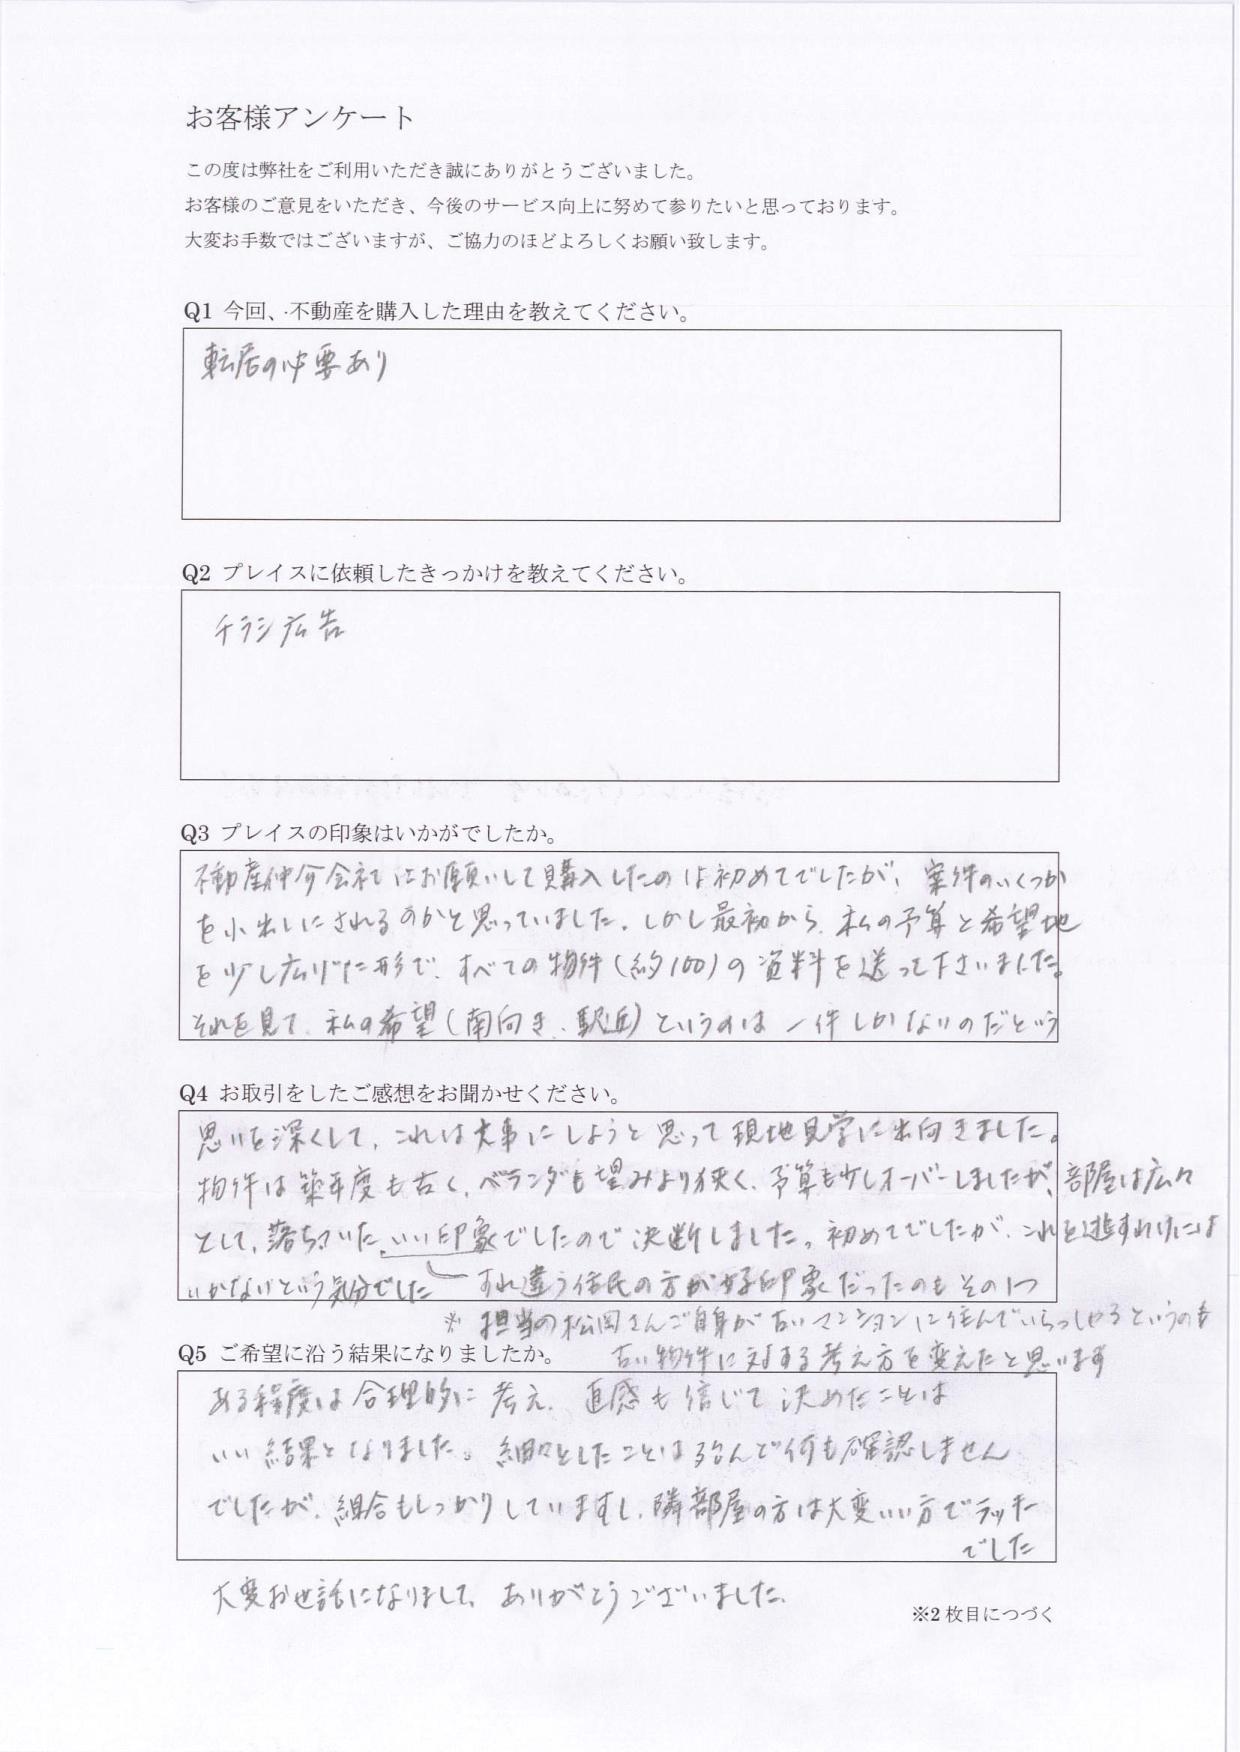 お客様アンケート
この度は弊社をご利用いただき誠にありがとうございました。
お客様のご意見をいただき、今後のサービス向上に努めて参りたいと思っております。
大変お手数ではございますが、ご協力のほどよろしくお願い致します。
Q1 今回、不動産を購入した理由を教えてください。
転居の必要あり
Q2 プレイスに依頼したきっかけを教えてください。
チラシ広告
Q3 プレイスの印象はいかがでしたか。
不動産仲介会社にお願いして購入したのは初めてでしたが、案件のいくつか
を小出しにされるのかと思っていました。しかし最初から、私の予算と希望地
を少し広げた形で、すべての物件(約100)の資料を送って下さいました。
それを見て、私の希望(南向き、駅近)というのは一件しかないのだという
Q4 お取引をしたご感想をお聞かせください。
思いを深くして、これは大事にしようと思って現地見学に出向きました。
物件は築年度も古く、ベランダも望みより狭く、予算も少しオーバーしましたが、部屋は広々
として、落ちついた、いい印象でしたので決断しました。初めてでしたが、これを逃すわけには
いかないという気分でした すれ違う住民の方が好印象だったのもその1つ
※ 担当の松岡さんご自身が古いマンションに住んでいらっしゃるというのも
古い物件に対する考え方を変えたと思います
Q5 ご希望に沿う結果になりましたか。
ある程度は合理的に考え、直感も信じて決めたことは
いい結果となりました。細々としたことは殆んで何も確認しません
でしたが、組合もしっかりしていますし、隣部屋の方は大変いい方でラッキー
でした
大変お世話になりまして、ありがとうございました。
※2 枚目につづく